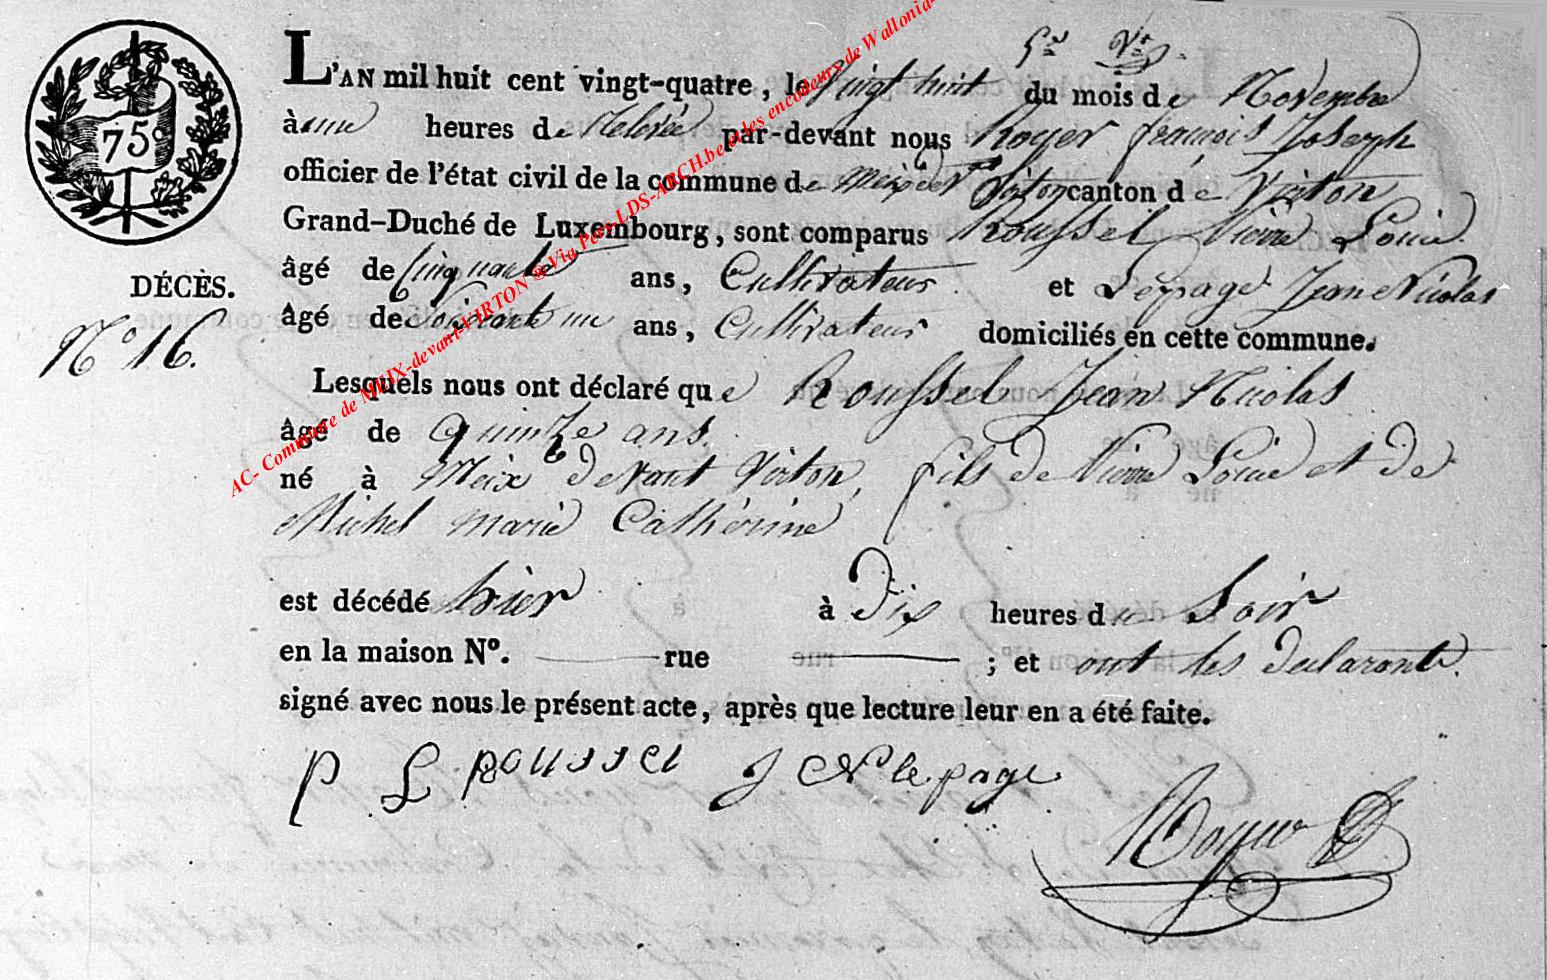 75
DÉCÈS.
N° 16.
L'AN mil huit cent vingt-quatre, le vingt huit du mois de Novembre
à une heures de relevée par-devant nous Royer françois Joseph
officier de l'état civil de la commune de meix dt Virton canton de Virton
Grand-Duché de Luxembourg, sont comparus Roussel Pierre Louis
âgé de Cinquante ans, Cultivateur et Lepage Jean Nicolas
âgé de soixante un ans, Cultivateur domiciliés en cette commune.
Lesquels nous ont déclaré que Roussel Jean Nicolas
âgé de quinze ans,
né à Meix devant Virton, fils de Pierre Louis et de
Michel marie Cathérine
est décédé hier à Dix heures du Soir
en la maison N°. rue ; et ont les declarants
signé avec nous le présent acte, après que lecture leur en a été faite.
P L Roussel J N lepage
Royer
AC- Commune de MEIX-devant-VIRTON ® Via Pers-LDS-ARCH.be et les encodeurs de Wallonia-